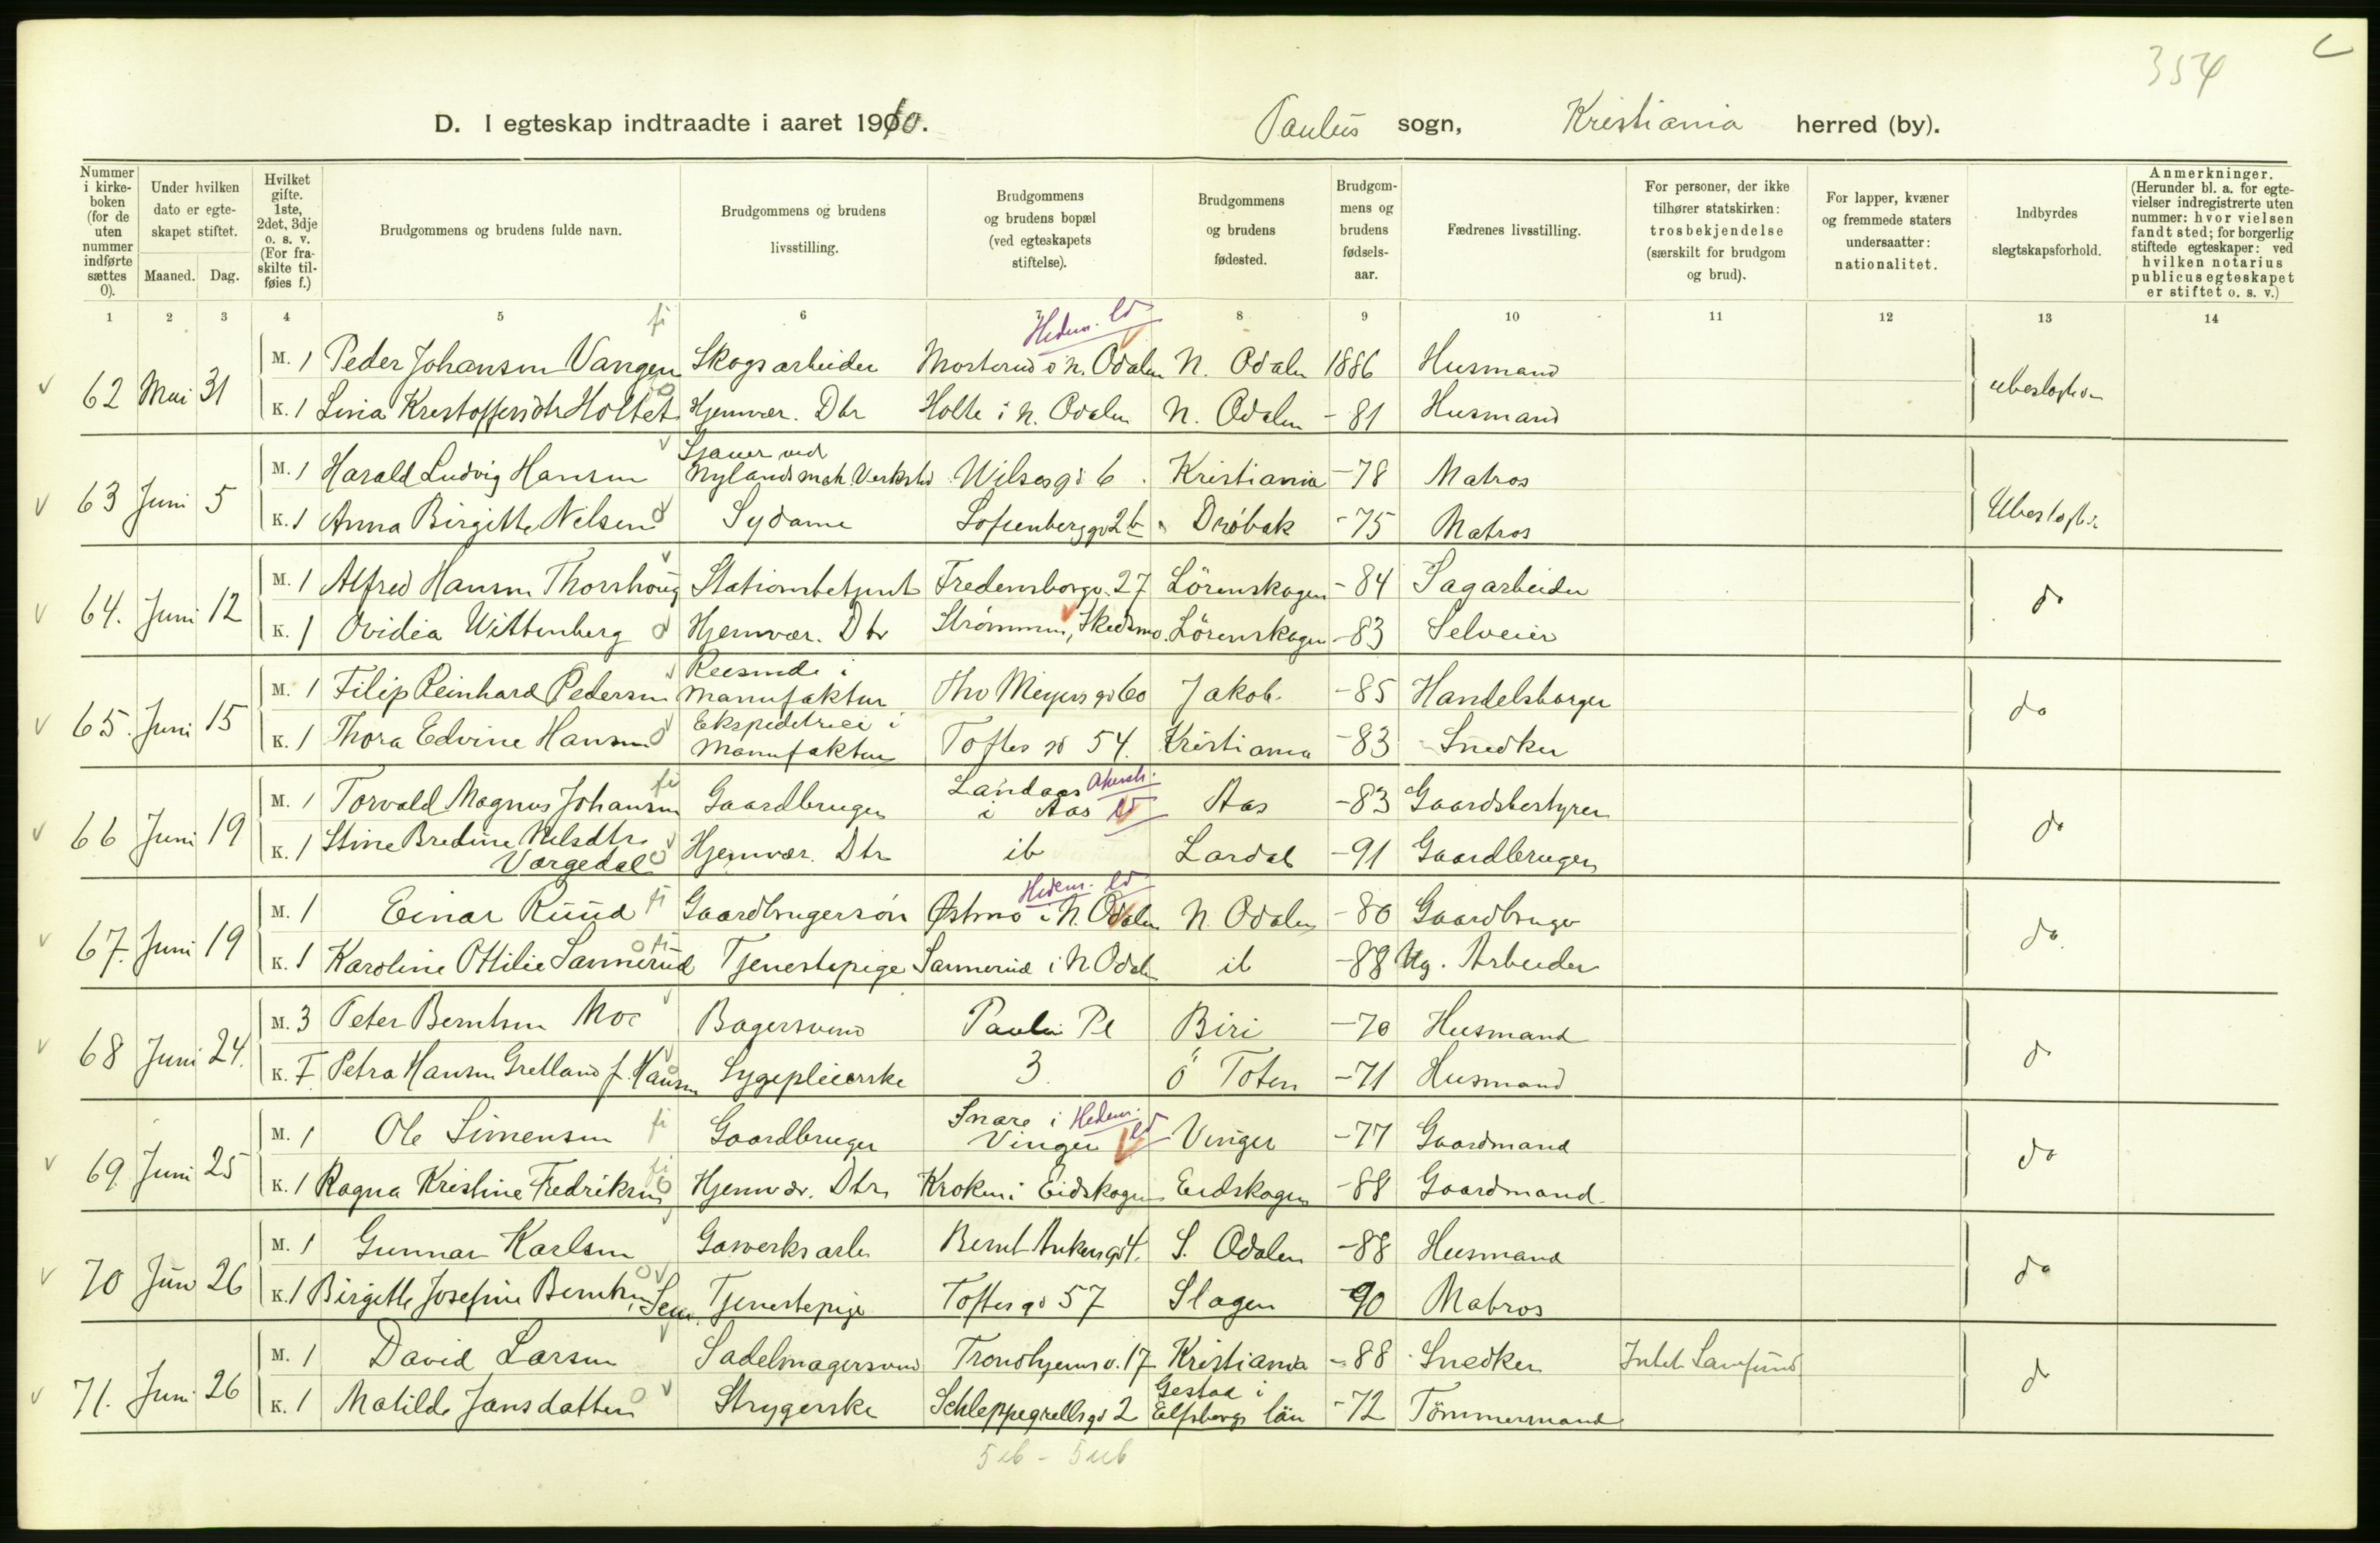 354
D. I egteskap indtraadte i aaret 1910. Paulus sogn, Kristiania herred (by).
Nummer i kirkeboken (for de uten nummer indførte sættes 0).
Under hvilken dato er egteskapet stiftet.
Maaned. Dag.
Hvilket gifte. 1ste, 2det, 3dje o. s. v. (For fraskilte tilføies f.)
Brudgommens og brudens fulde navn.
Brudgommens og brudens livsstilling.
Brudgommens og brudens bopæl (ved egteskapets stiftelse).
Brudgommens og brudens fødested.
Brudgommens og brudens fødselsaar.
Fædrenes livsstilling.
For personer, der ikke tilhører statskirken: trosbekjendelse (særskilt for brudgom og brud).
For lapper, kvæner og fremmede staters undersaatter: nationalitet.
Indbyrdes slegtskapsforhold.
Anmerkninger. (Herunder bl. a. for egtevielser indregistrerte uten nummer: hvor vielsen fandt sted; for borgerlig stiftede egteskaper: ved hvilken notarius publicus egteskapet er stiftet o. s. v.)
1 2 3 4 5 6 7 8 9 10 11 12 13 14
Hedm. ld
62 Mai 31 M. 1 Peder Johansen Vangen Skogsarbeider Mosterud i N. Odalen N. Odalen 1886 Husmand
K. 1 Lina Kristoffersdtr Holtet Hjemvær. Dtr Holte i N. Odalen N. Odalen -81 Husmand ubeslegtede
63 Juni 5 M. 1 Harald Ludvig Hansen Sjauer ved Nylands mek. Verksted Wilsesgd 6 Kristiania -78 Matros
K. 1 Anna Birgitte Nelsen Sydame Sofienberggd 2b Drøbak -75 Matros Ubeslegtede
64. Juni 12 M. 1 Alfred Hansen Thorshoug Stationsbetjent Fredensborgv. 27 Lörenskogen -84 Sagarbeider
K. 1 Ovidia Wittenberg Hjemvær. Dtr Strømmen, Skedsmo. Lörenskogen -83 Selveier do
65. Juni 15 M. 1 Filip Reinhard Pedersen Reisende i Manufaktur Thv Meyers gd 60 Jakob. -85 Handelsborger
K. 1 Thora Edvine Hansen Ekspeditrice i Manufaktur Toftes gd 54. Kristiania -83 Snedker do
66 Juni 19 M. 1 Torvald Magnus Johansen Gaardbruger Landaas i Aas Akersh. ld Aas -83 Gaardsbestyrer
K. 1 Stine Bredine Nelsdtr Vargedal Hjemvær. Dtr ib Lardal -91 Gaardbruger do
Hedm. ld
67. Juni 19 M. 1 Einar Ruud Gaardbrugersön Østmo i N. Odalen N. Odalen -80 Gaardbruger
K. 1 Karoline Ottilie Sannerud Tjenestepige Sannerud i N Odalen ib -88 Arbeider do
68 Juni 24. M. 3 Peter Berntsen Moe Bagersvend Paulus Pl Biri -70 Husmand
K. F. Petra Hansen Gretland f. Hansen Sygepleierske 3. Ö Toten -71 Husmand do
69. Juni 25 M. 1 Ole Simensen Gaardbruger Snare i Vinger Hedm. ld Vinger -77 Gaardmand
K. 1 Ragna Kristine Fredriksen Hjemvær. Dtr Kroken i Eidskogen Eidskogen -88 Gaardmand do
70 Juni 26 M. 1 Gunnar Karlsen Gasverksarb. Bernt Ankers gd 4. S. Odalen -88 Husmand
K. 1 Birgitte Josefine Berntsen Sem Tjenestepige Toftes gd 57 Slagen -90 Matros do
71. Juni 26 M. 1 David Larsen Sadelmagersvend Trondhjemsv. 17 Kristiania -88 Snedker Intet Samfund
K. 1 Matilde Jansdatter Strygerske Schleppegrellsgd 2 Gestad i Elfsborgs län -72 Tömmermand do
5 ib - 5 uib